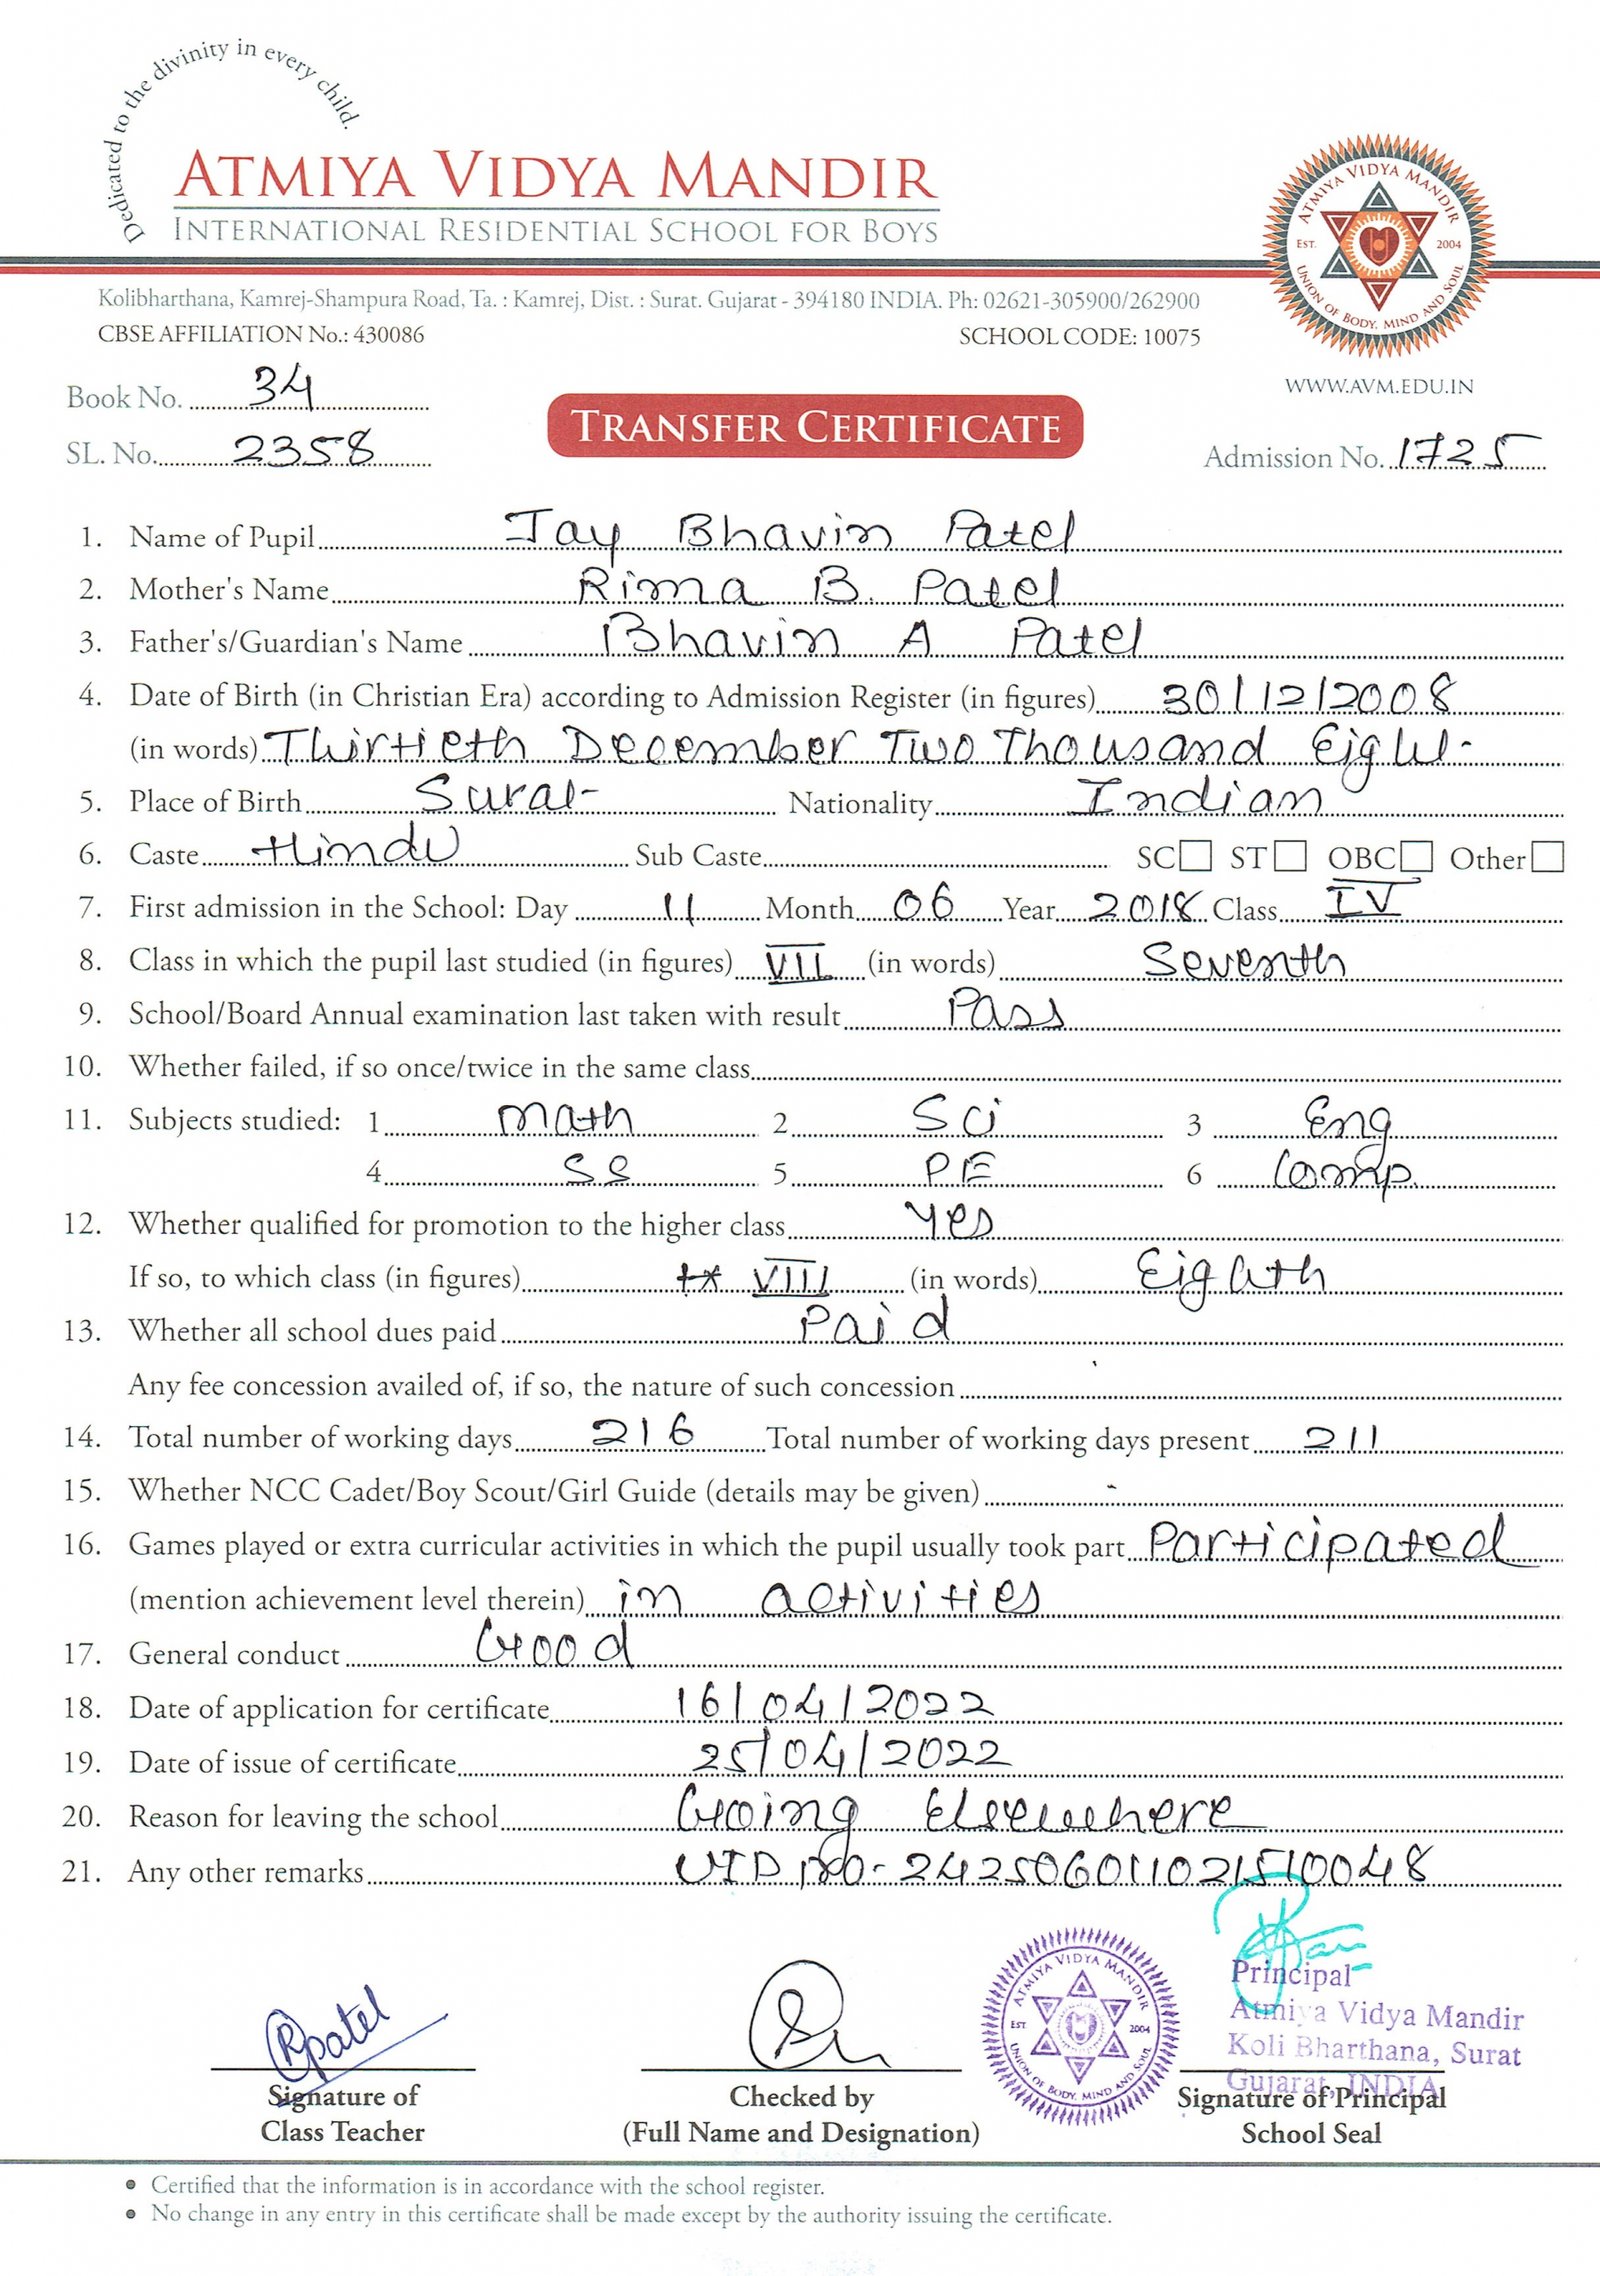 Dedicated to the divinity in every child.
ATMIYA VIDYA MANDIR
INTERNATIONAL RESIDENTIAL SCHOOL FOR BOYS
ATMIYA VIDYA MANDIR
EST. 2004
UNION OF BODY, MIND AND SOUL
Kolibharthana, Kamrej-Shampura Road, Ta. : Kamrej, Dist. : Surat. Gujarat - 394180 INDIA. Ph: 02621-305900/262900
CBSE AFFILIATION No.: 430086 SCHOOL CODE: 10075
WWW.AVM.EDU.IN
Book No. 34
TRANSFER CERTIFICATE
SL. No. 2358 Admission No. 1725
1. Name of Pupil Jay Bhavin Patel
2. Mother's Name Rima B. Patel
3. Father's/Guardian's Name Bhavin A Patel
4. Date of Birth (in Christian Era) according to Admission Register (in figures) 30/12/2008
(in words) Thirtieth December Two Thousand Eight
5. Place of Birth Surat Nationality Indian
6. Caste Hindu Sub Caste SC ST OBC Other
7. First admission in the School: Day 11 Month 06 Year 2018 Class IV
8. Class in which the pupil last studied (in figures) VII (in words) Seventh
9. School/Board Annual examination last taken with result Pass
10. Whether failed, if so once/twice in the same class
11. Subjects studied: 1 Math 2 Sci 3 Eng
4 SS 5 PE 6 Comp.
12. Whether qualified for promotion to the higher class Yes
If so, to which class (in figures) VIII (in words) Eighth
13. Whether all school dues paid Paid
Any fee concession availed of, if so, the nature of such concession
14. Total number of working days 216 Total number of working days present 211
15. Whether NCC Cadet/Boy Scout/Girl Guide (details may be given) -
16. Games played or extra curricular activities in which the pupil usually took part Participated
(mention achievement level therein) in activities
17. General conduct Good
18. Date of application for certificate 16/04/2022
19. Date of issue of certificate 25/04/2022
20. Reason for leaving the school Going Elsewhere
21. Any other remarks UID no- 242506011021510048
Rpatel
ATMIYA VIDYA MANDIR
EST 2004
UNION OF BODY, MIND AND SOUL
Principal
Atmiya Vidya Mandir
Koli Bharthana, Surat
Gujarat, INDIA
Signature of Checked by Signature of Principal
Class Teacher (Full Name and Designation) School Seal
• Certified that the information is in accordance with the school register.
• No change in any entry in this certificate shall be made except by the authority issuing the certificate.